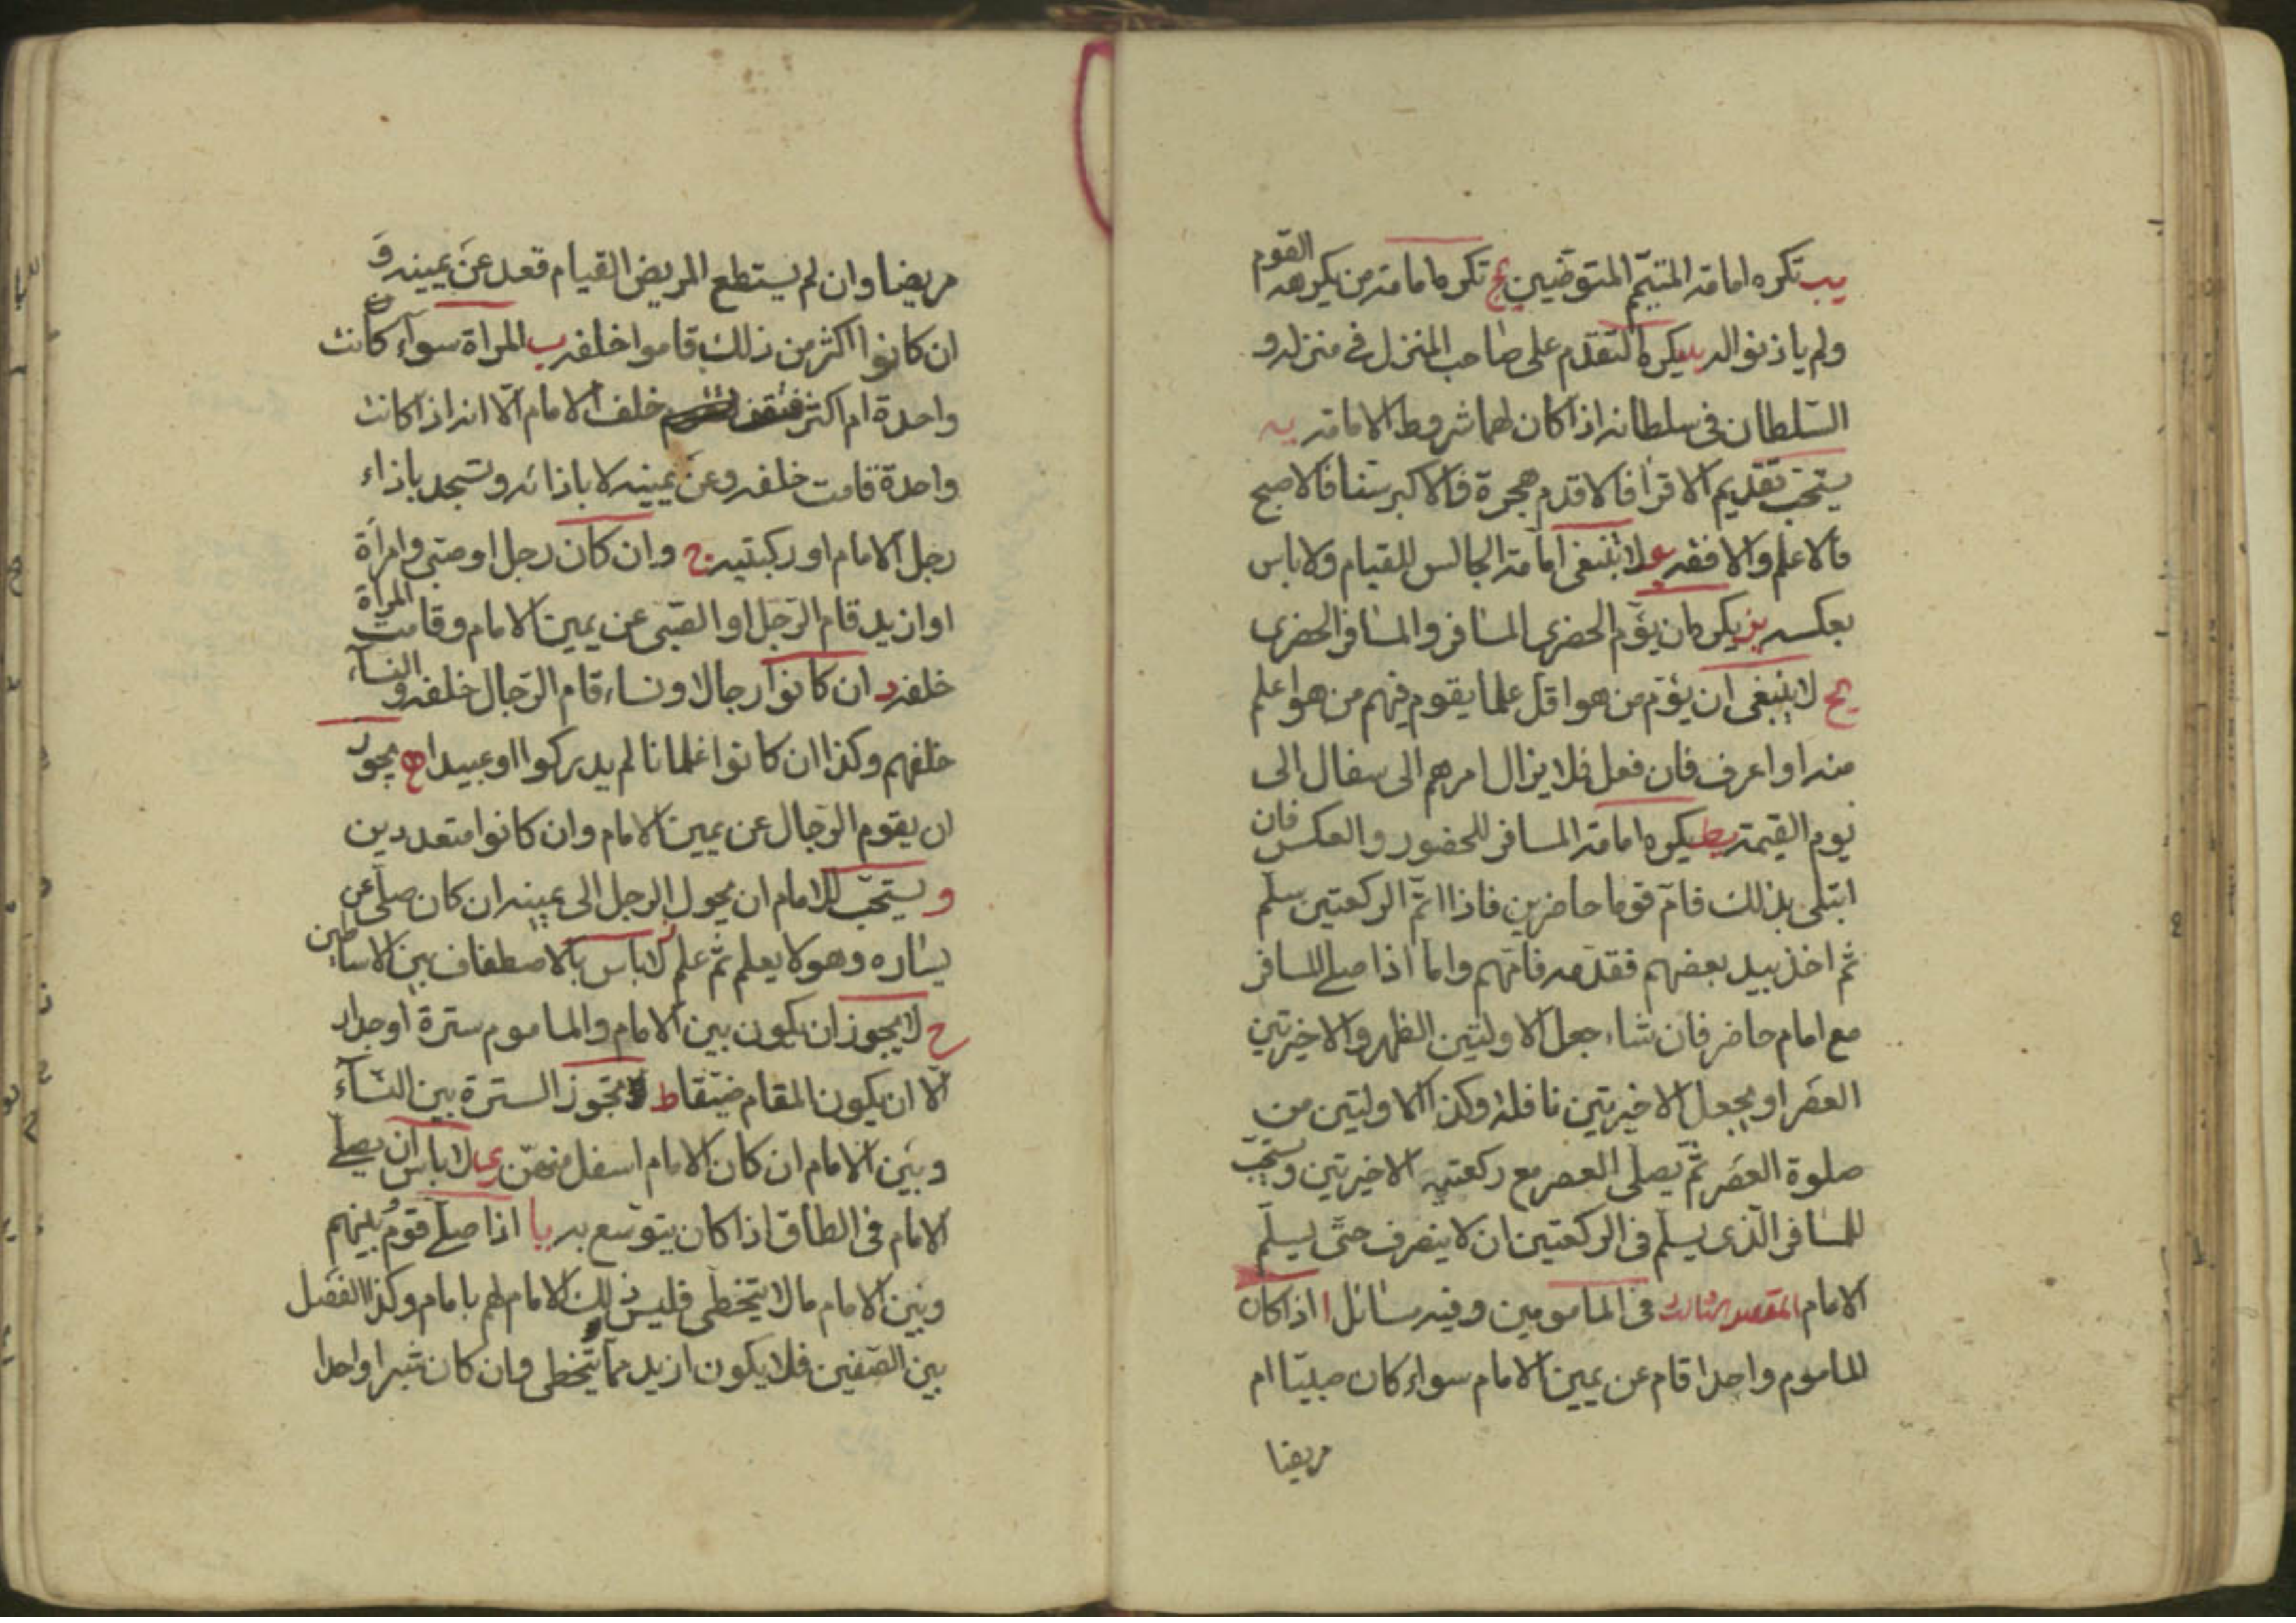 يب تكره امامة المتيمّم المتوضّين يج تكره امامة من يكرهه القوم
ولم ياذنوا له يد يكره التقدم على صاحب المنزل فى منزله و
السّلطان فى سلطانه اذا كان لهما شروط الامامة يه
يستحب تقديم الاقرأ فالاقدم هجرة فالاكبر سنا فالاصبح
فالاعلم والافقه يو لا ينبغى امامة الجالس للقيام ولا باس
بعكسه يز يكره ان يؤم الحضرى المسافر والمسافر الحضرى
يح لا ينبغى ان يؤم من هو اقل علما بقوم فيهم من هو اعلم
منه او اعرف فان فعل فلا يزال امرهم الى سفال الى
يوم القيمة يط يكره امامة المسافر للحضور والعكس فان
ابتلى بذلك فامّ قوما حاضرين فاذا اتمّ الركعتين سلّم
ثم اخذ بيد بعضهم فقدمه فامّهم واما اذا صلى المسافر
مع امام حاضر فان شاء جعل الاولتين الظهر والاخيرتين
العصر او يجعل الاخيرتين نافلة وكذا الاولتين من
صلوة العصر ثمّ يصلى العصر مع ركعتيه الاخيرتين ويستحبّ
للمسافر الّذى يسلّم فى الركعتين ان لا ينصرف حتّى يسلّم
الامام المقصد الثالث فى المامومين وفيه مسائل ا اذا كان
الماموم واحدا قام عن يمين الامام سواء كان صبيّا ام
مريضا
مريضا وان لم يستطع المريض القيام قعد عن يمينه و
ان كانوا اكثر من ذلك قاموا خلفه ب المراة سوآء كانت
واحدة ام اكثر فتقف خلف الامام الّا انه اذا كانت
واحدة قامت خلفه وعن يمينه لا باذائه وتسجد باذاء
رجل الامام او ركبتيه ج وان كان رجل او صبى وامرأة
او ازيد قام الرّجل او الصّبى عن يمين الامام وقامت المرأة
خلفه د ان كانوا رجالا ونساء قام الرّجال خلفه والنسآء
خلفهم وكذا ان كانوا غلمانا لم يدركوا او عبيدا ه يجوز
ان يقوم الرّجال عن يمين الامام وان كانوا متعددين
و يستحبّ للامام ان يحول الرجل الى يمينه ان كان صلّى عن
يساره وهو لا يعلم ثم علم ز لا باس بالاصطفاف بين الاساطين
ح لا يجوز ان يكون بين الامام والماموم سترة او جدار
الّا ان يكون المقام ضيّقا ط تجوز السترة بين النسآء
وبين الامام ان كان الامام اسفل منهنّ ى لا باس ان يصلّى
الامام فى الطاق اذا كان يتوسّع به يا اذا صلّى قوم بينهم
وبين الامام ما لا يتخطى فليس ذلك الامام لهم بامام وكذا الفصل
بين الصّفين فلا يكون ازيد مما يتخطى وان كان شبرا واحدا